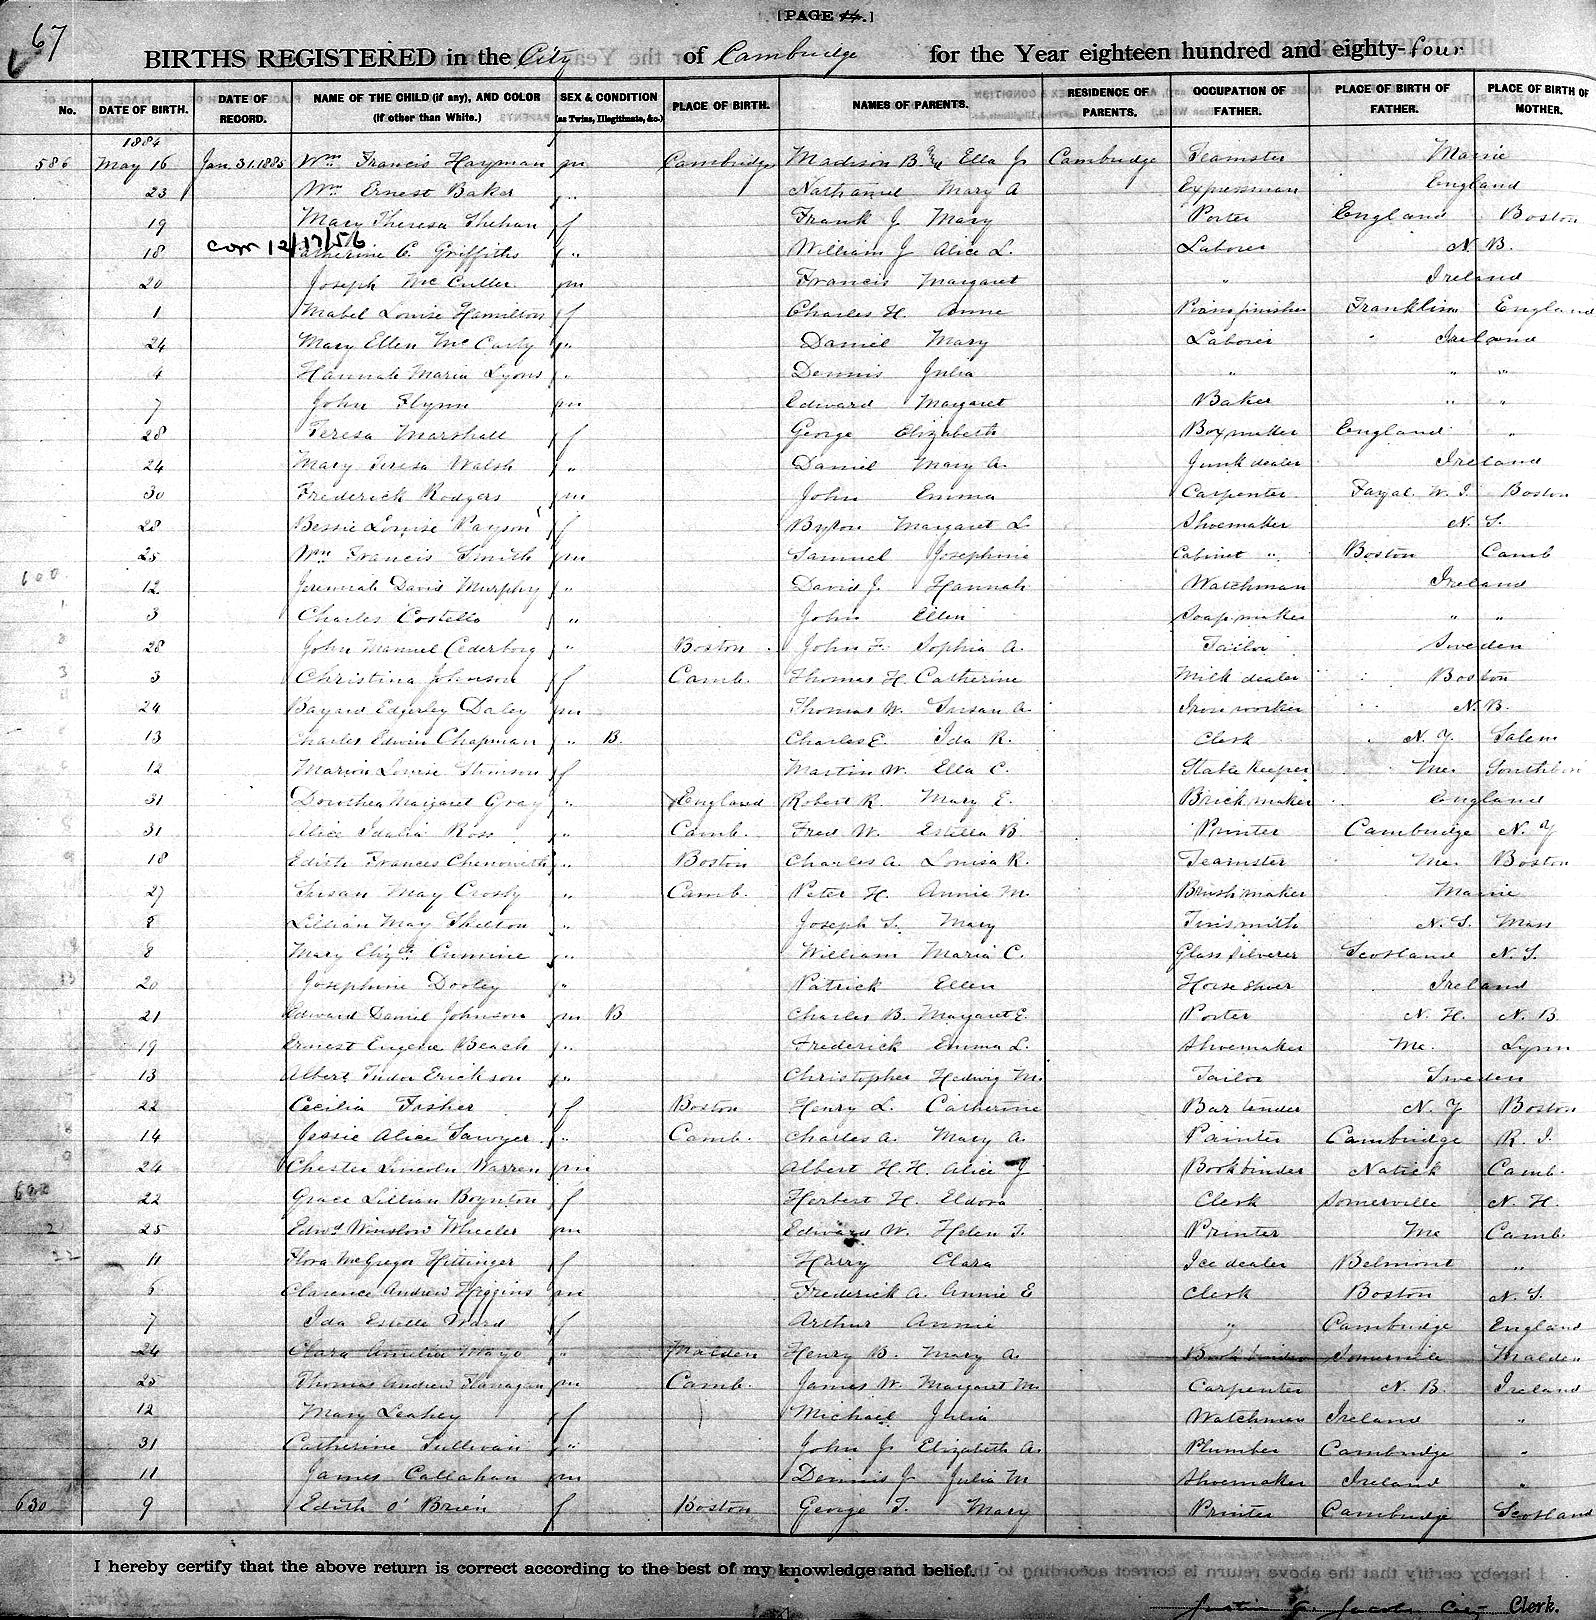 67
[PAGE 14.]
BIRTHS REGISTERED in the City of Cambridge for the Year eighteen hundred and eighty-four
No. DATE OF BIRTH. DATE OF RECORD. NAME OF THE CHILD (if any), AND COLOR (if other than White.) SEX & CONDITION (as Twins, Illegitimate, &c.) PLACE OF BIRTH. NAMES OF PARENTS. RESIDENCE OF PARENTS. OCCUPATION OF FATHER. PLACE OF BIRTH OF FATHER. PLACE OF BIRTH OF MOTHER.
1884
586 May 16 Jan 31.1885 Wm Francis Hayman m Cambridge Madison B & Ella J Cambridge Teamster Maine
23 Wm Ernest Baker " Nathaniel Mary A Expressman England
19 Mary Theresa Shehan f Frank J Mary Porter England Boston
18 corr 12/17/56 Catherine C. Griffiths " William J Alice L. Laborer N. B.
20 Joseph McCuller m Francis Margaret " Ireland
1 Mabel Louise Hamilton f Charles H. Anne Piano finisher Franklin England
24 Mary Ellen McCarty " Daniel Mary Laborer " Ireland
4 Hannah Maria Lyons " Dennis Julia " " "
7 John Flynn m Edward Margaret Baker " "
28 Teresa Marshall f George Elizabeth Boxmaker England "
24 Mary Teresa Walsh " Daniel Mary A. Junk dealer Ireland
30 Frederick Rodgers m John Emma Carpenter Fayal W. I. Boston
28 Bessie Louise Payson f Byron Margaret L. Shoemaker N. S.
25 Wm Francis Smith m Samuel Josephine Cabinet " Boston Camb
600 12 Jeremiah David Murphy " David J. Hannah Watchman Ireland
1 3 Charles Costello " John Ellen Soap maker " "
2 28 John Manuel Cederborg " Boston John F. Sophia A. Tailor Sweden
3 3 Christina Johnson f Camb. Thomas H. Catherine Milk dealer Boston
24 Bayard Edgerley Daley m Thomas W. Susan A. Iron worker N. B.
13 Charles Edwin Chapman " B. Charles E. Ida R. Clerk N. Y. Salem
12 Marion Louise Stimson f Martin W. Ella C. Stable Keeper Me.
31 Dorothea Margaret Gray " England Robert R. Mary E. Brick maker England
31 Alice Idalia Ross " Camb. Fred W. Estella B. Printer Cambridge N. Y
18 Edith Frances Chenowith " Boston Charles A. Louisa R. Teamster Me. Boston
27 Susan May Crosby " Camb. Peter H. Annie M. Brush maker Maine
8 Lillian May Shelton " Joseph S. Mary Tinsmith N. S. Mass
8 Mary Elizth Cumine " William Maria C. Glass silverer Scotland N. S.
20 Josephine Dooley " Patrick Ellen Horse shoer Ireland
21 Edward Daniel Johnson m B Charles B. Margaret E. Porter N. H. N. B.
19 Ernest Eugene Beach " Frederick Emma L. Shoemaker Me. Lynn
13 Albert Tudor Erickson " Christopher Hedwig M. Tailor Sweden
22 Cecilia Fisher f Boston Henry L. Catherine Bar tender N. Y Boston
14 Jessie Alice Sawyer " Camb. Charles A. Mary A. Painter Cambridge R. I.
24 Chester Lincoln Warren m Albert H. H. Alice J Bookbinder Natick Camb.
22 Grace Lillian Boynton f Herbert H. Eldora Clerk Somerville N. H.
25 Edwd Winslow Wheeler m Edward W. Helen T. Printer Me Camb.
11 Flora McGregor Hittinger f Harry Clara Ice dealer Belmont "
6 Clarence Andrew Higgins m Frederick A. Annie E Clerk Boston N. S.
7 Ida Estelle Ward f Arthur Annie " Cambridge England
24 Clara Amelia Mayo " Malden Henry B. Mary A. Bookbinder Somerville Malden
25 Thomas Andrew Flanagan m Camb. James W. Margaret M. Carpenter N. B. Ireland
12 Mary Leahey f Michael Julia Watchman Ireland "
31 Catherine Sullivan " John J. Elizabeth A. Plumber Cambridge "
11 James Callahan m Dennis J Julia M Shoemaker Ireland "
630 9 Edith O'Brien f Boston George T. Mary Printer Cambridge Scotland
I hereby certify that the above return is correct according to the best of my knowledge and belief.
Justin A. Jacobs City Clerk.